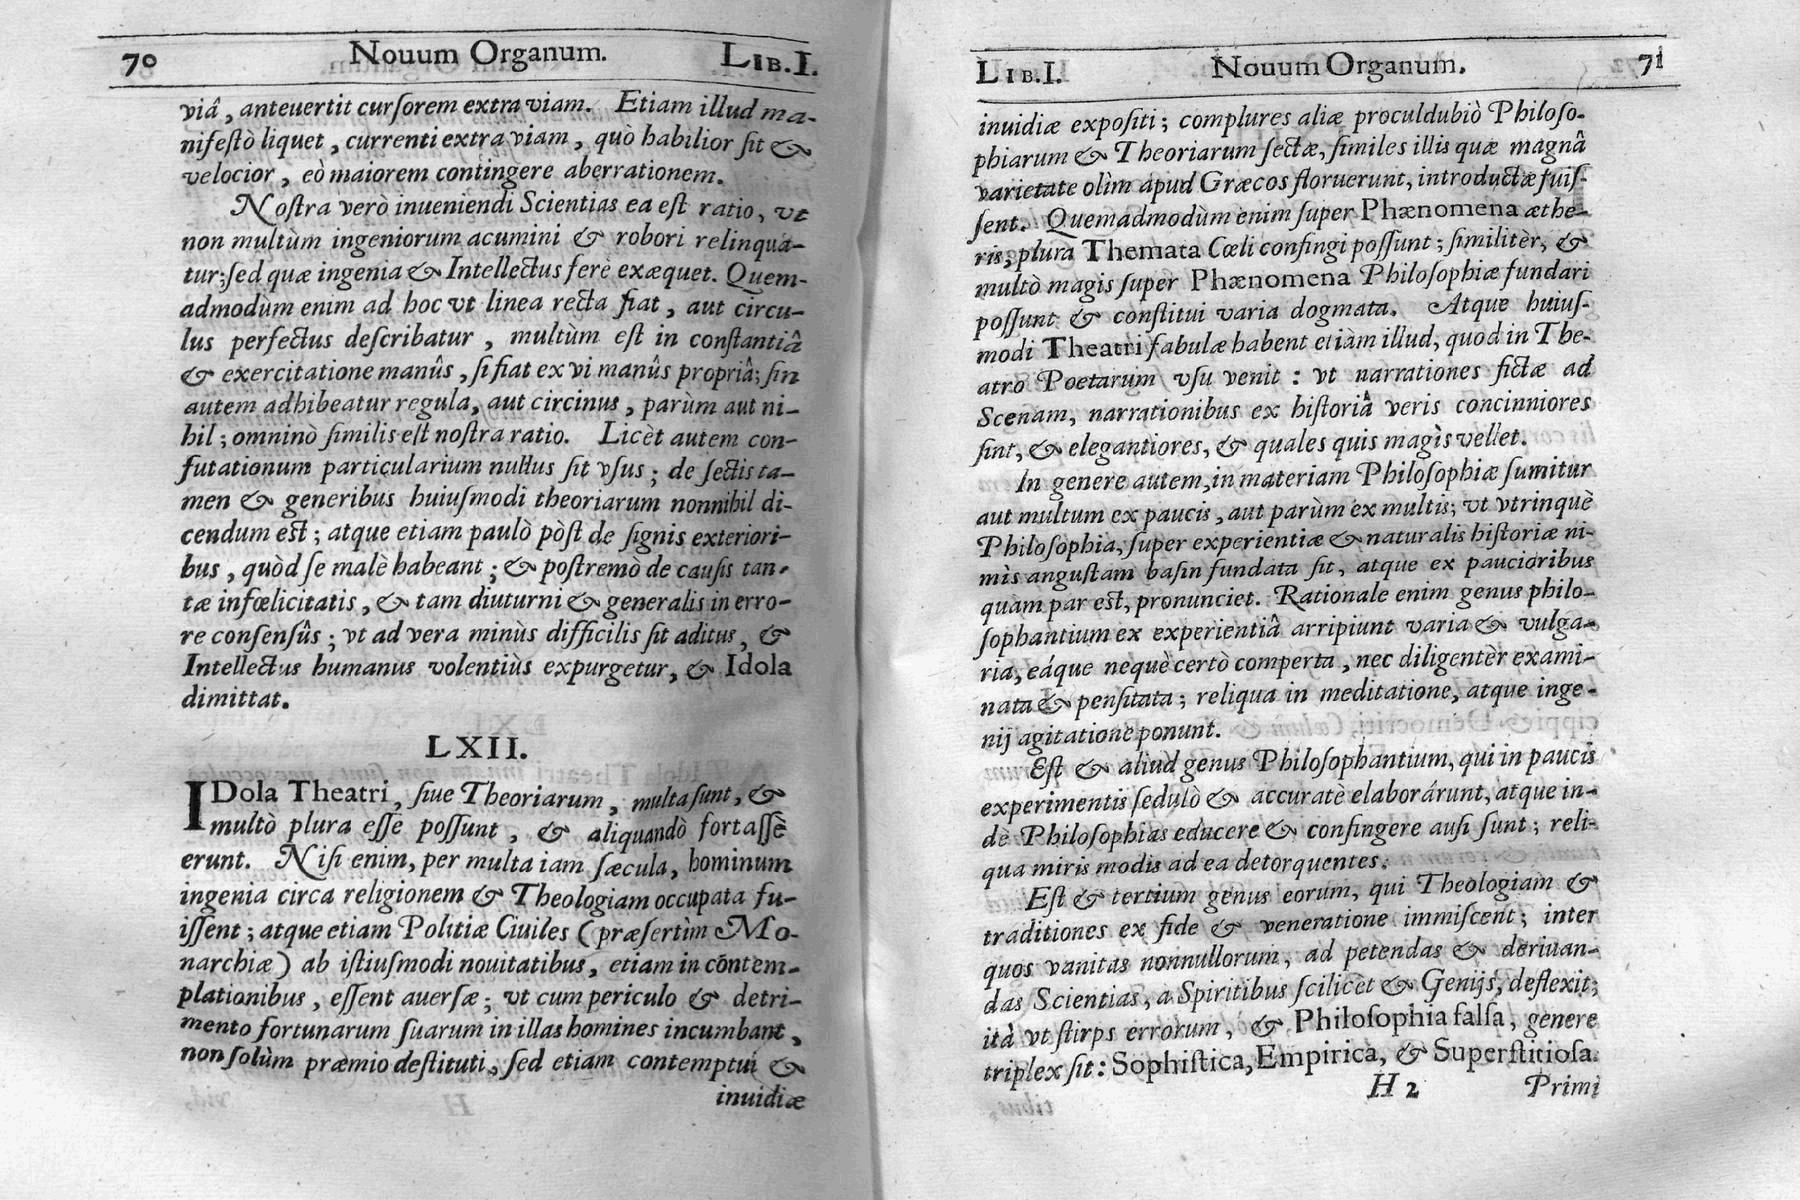 70 Nouum Organum. LIB.I.
viâ, anteuertit curſorem extra viam. Etiam illud ma-
nifeſtò liquet, currenti extra viam, quò habilior ſit &
velocior, eò maiorem contingere aberrationem.
Noſtra verò inueniendi Scientias ea eſt ratio, vt
non multùm ingeniorum acumini & robori relinqua-
tur; ſed quæ ingenia & Intellectus ferè exæquet. Quem-
admodùm enim ad hoc vt linea recta fiat, aut circu-
lus perfectus deſcribatur, multùm eſt in conſtantiâ
& exercitatione manûs, ſi fiat ex vi manûs propriâ; ſin
autem adhibeatur regula, aut circinus, parùm aut ni-
hil; omninò ſimilis eſt noſtra ratio. Licèt autem con-
futationum particularium nullus ſit vſus; de ſectis ta-
men & generibus huiuſmodi theoriarum nonnihil di-
cendum eſt; atque etiam paulò pòſt de ſignis exteriori-
bus, quòd ſe malè habeant; & poſtremò de cauſis tan-
tæ infœlicitatis, & tam diuturni & generalis in erro-
re conſenſûs; vt ad vera minùs difficilis ſit aditus, &
Intellectus humanus volentiùs expurgetur, & Idola
dimittat.
LXII.
IDola Theatri, ſiue Theoriarum, multa ſunt, &
multò plura eſſe poſſunt, & aliquandò fortaſſè
erunt. Niſi enim, per multa iam ſæcula, hominum
ingenia circa religionem & Theologiam occupata fu-
iſſent; atque etiam Politiæ Ciuiles (præſertim Mo-
narchiæ) ab iſtiuſmodi nouitatibus, etiam in cōntem-
plationibus, eſſent auerſæ; vt cum periculo & detri-
mento fortunarum ſuarum in illas homines incumbant,
non ſolùm præmio deſtituti, ſed etiam contemptui &
inuidiæ
LIB.I. Nouum Organum. 71
inuidiæ expoſiti; complures aliæ proculdubiò Philoſo-
phiarum & Theoriarum ſectæ, ſimiles illis quæ magnâ
varietate olìm apud Græcos floruerunt, introductæ fuiſ-
ſent. Quemadmodùm enim ſuper Phænomena æthe-
ris, plura Themata Cœli confingi poſſunt; ſimilitèr, &
multò magis ſuper Phænomena Philoſophiæ fundari
poſſunt & conſtitui varia dogmata. Atque huiuſ-
modi Theatri fabulæ habent etiàm illud, quod in The-
atro Poetarum vſu venit: vt narrationes fictæ ad
Scenam, narrationibus ex hiſtoriâ veris concinniores
ſint, & elegantiores, & quales quis magìs vellet.
In genere autem, in materiam Philoſophiæ ſumitur
aut multum ex paucis, aut parùm ex multis; vt vtrinquè
Philoſophia, ſuper experientiæ & naturalis hiſtoriæ ni-
mìs anguſtam baſin fundata ſit, atque ex paucioribus
quàm par eſt, pronunciet. Rationale enim genus philo-
ſophantium ex experientiâ arripiunt varia & vulga-
ria, eáque nequè certò comperta, nec diligentèr exami-
nata & penſitata; reliqua in meditatione, atque inge-
nij agitatione ponunt.
Eſt & aliud genus Philoſophantium, qui in paucis
experimentis ſedulò & accuratè elaborárunt, atque in-
dè Philoſophias educere & confingere auſi ſunt; reli-
qua miris modis ad ea detorquentes.
Eſt & tertium genus eorum, qui Theologiam &
traditiones ex fide & veneratione immiſcent; inter
quos vanitas nonnullorum, ad petendas & deriuan-
das Scientias, a Spiritibus ſcilicèt & Genijs, deflexit;
ità vt ſtirps errorum, & Philoſophia falſa, genere
triplex ſit: Sophiſtica, Empirica, & Superſtitioſa.
H 2 Primi